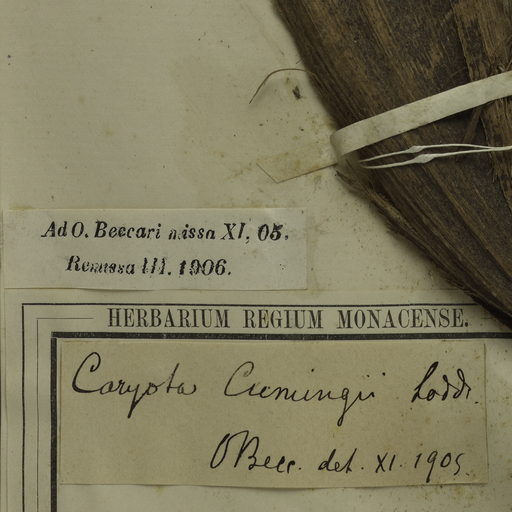 Ad O. Beccari missa XI, 05.
Remissa III. 1906.
HERBARIUM REGIUM MONACENSE.
Caryota Cumingii Lodd.
OBecc. det. XI. 1905.